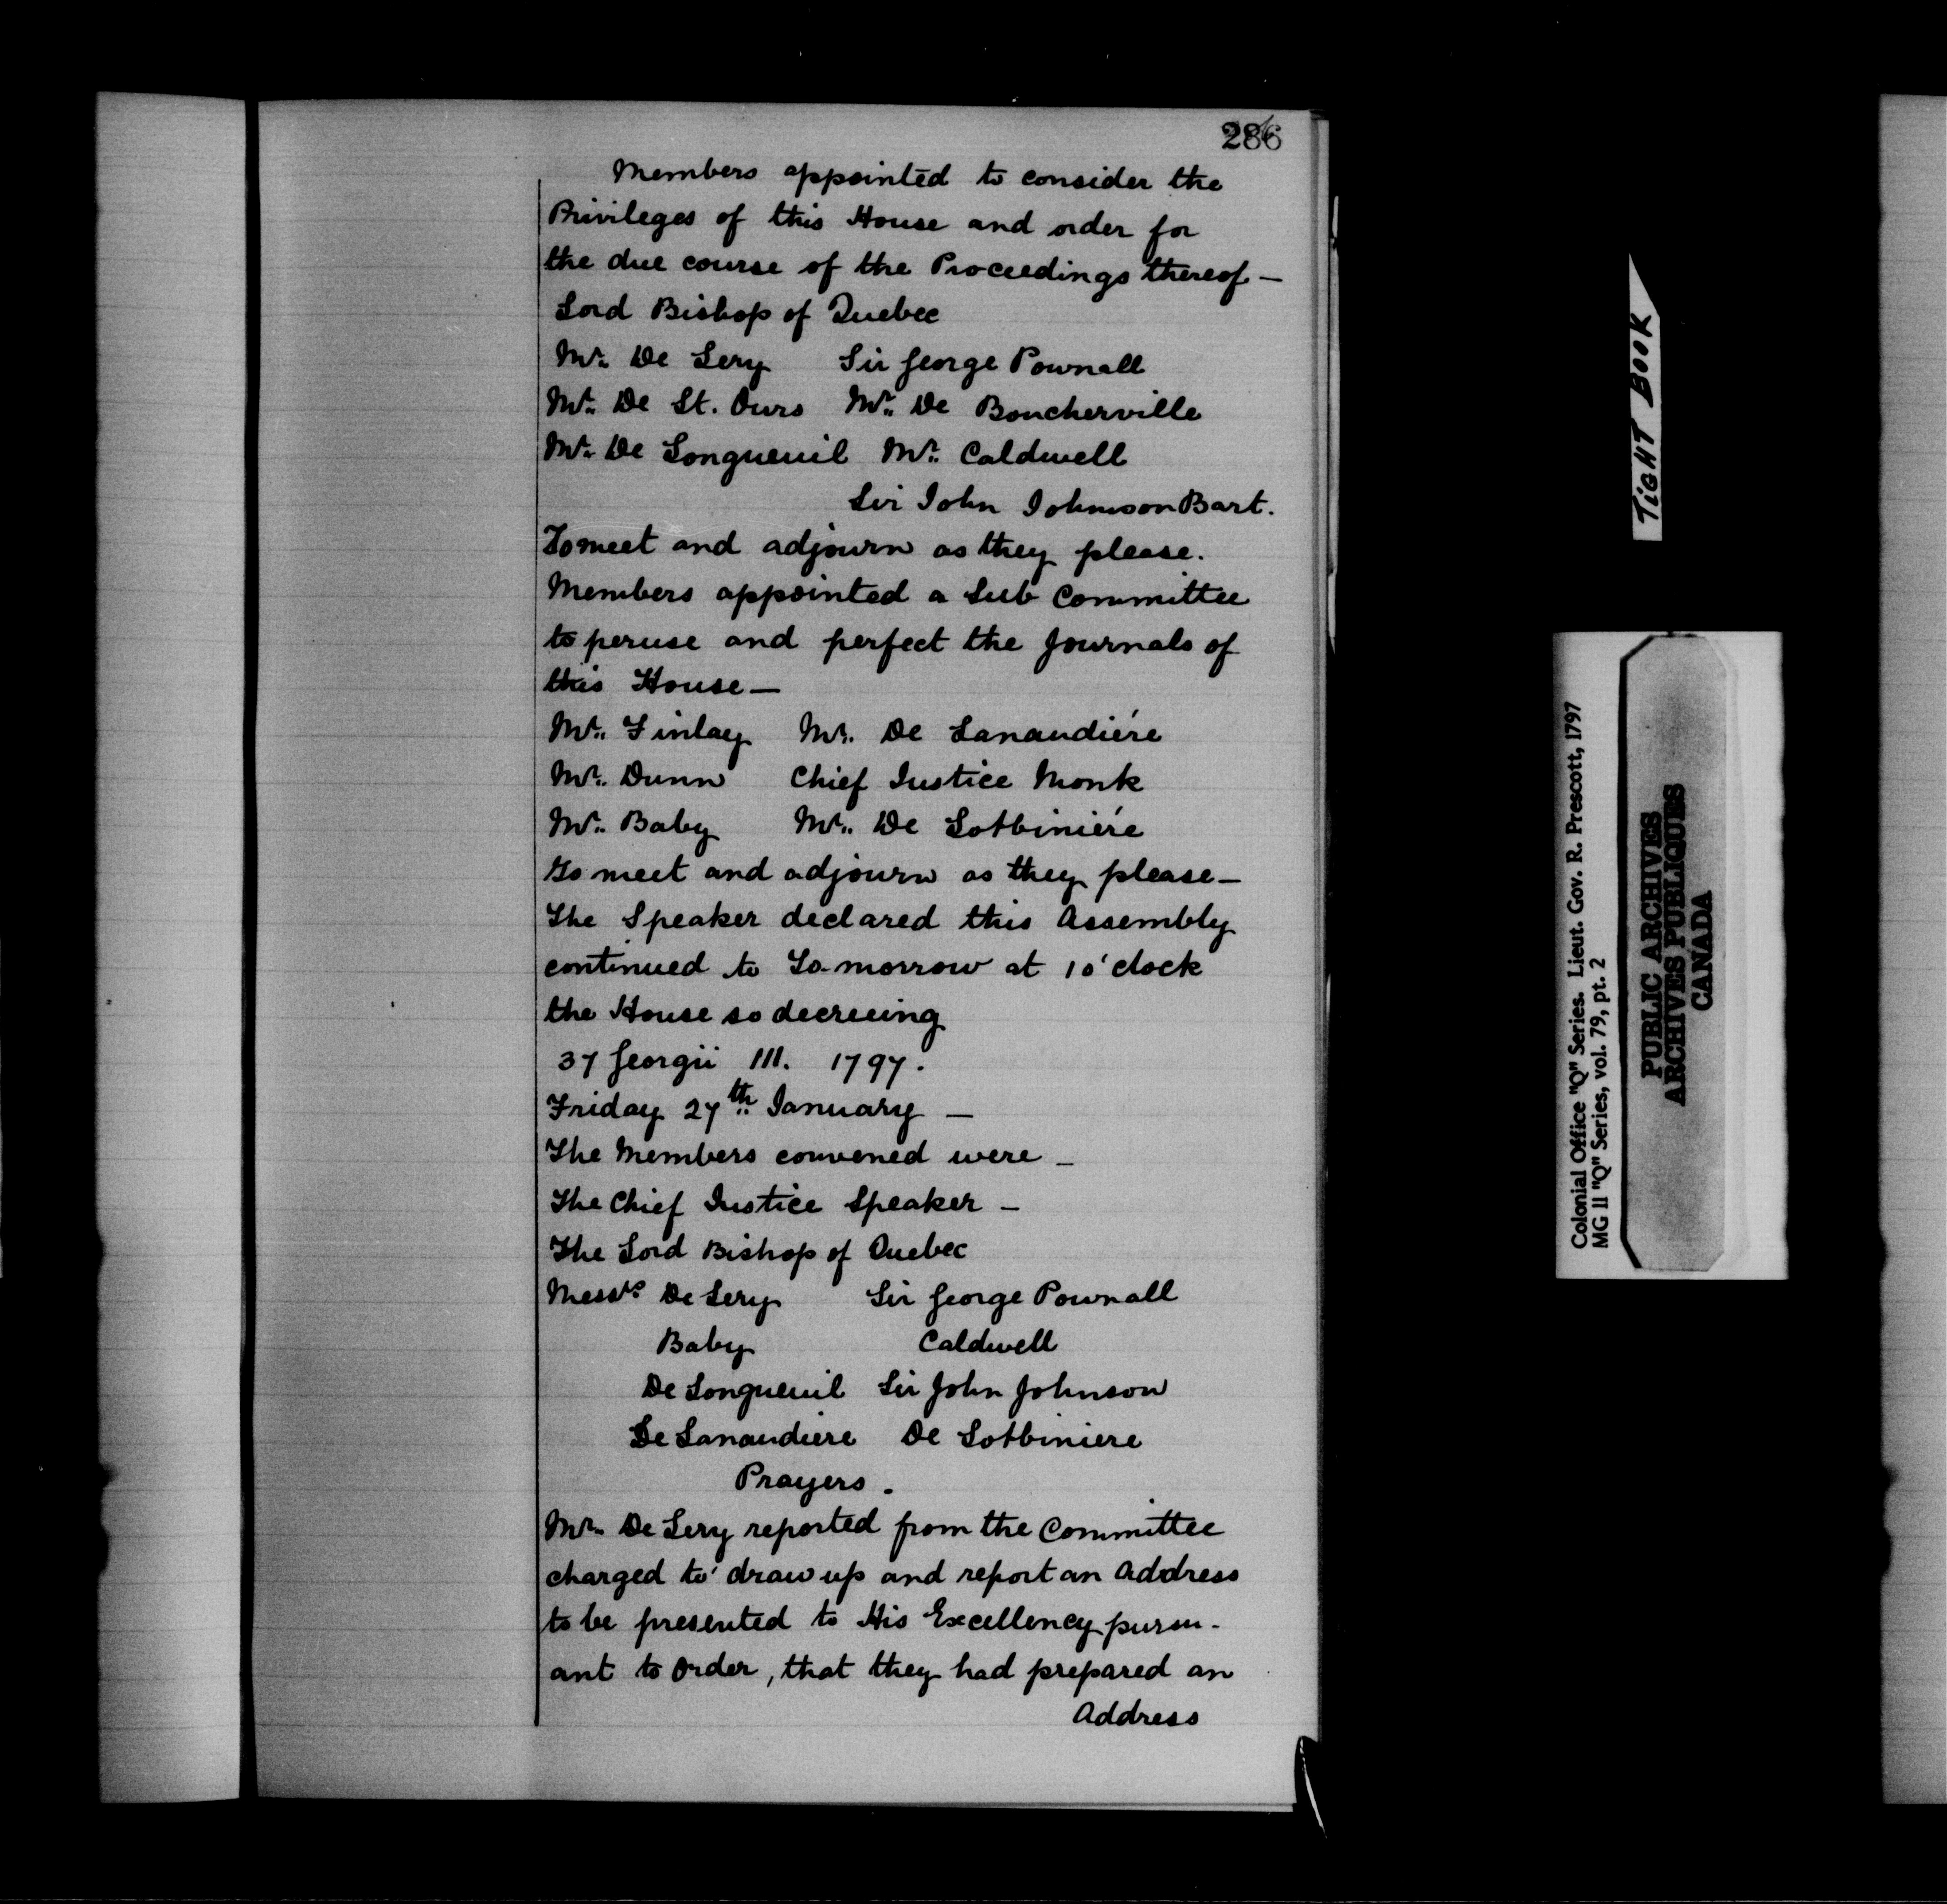 286
Members appointed to consider the
Privileges of this House and order for
the due course of the Proceedings thereof —
Lord Bishop of Quebec
Mr. De Lery Sir George Pownall
Mr. De St. Ours Mr. De Boucherville
Mr. De Longueuil Mr. Caldwell
Sir John Johnson Bart.
To meet and adjourn as they please.
Members appointed a Sub Committee
to peruse and perfect the Journals of
this House —
Mr. Finlay Mr. De Lanaudiére
Mr. Dunn Chief Justice Monk
Mr. Baby Mr. De Lotbiniére
To meet and adjourn as they please —
The Speaker declared this Assembly
continued to To-morrow at 10'clock
the House so decreeing
37 Georgii III. 1797.
Friday 27th January —
The Members convened were —
The Chief Justice Speaker —
The Lord Bishop of Quebec
Messrs De Lery Sir George Pownall
Baby Caldwell
De Longueuil Sir John Johnson
De Lanaudiere De Lotbiniere
Prayers.
Mr. De Lery reported from the Committee
charged to draw up and report an Address
to be presented to His Excellency pursu-
ant to Order, that they had prepared an
Address
TIGHT BOOK
Colonial Office "Q" Series. Lieut. Gov. R. Prescott, 1797
MG 11 "Q" Series, vol. 79, pt. 2
PUBLIC ARCHIVES
ARCHIVES PUBLIQUES
CANADA